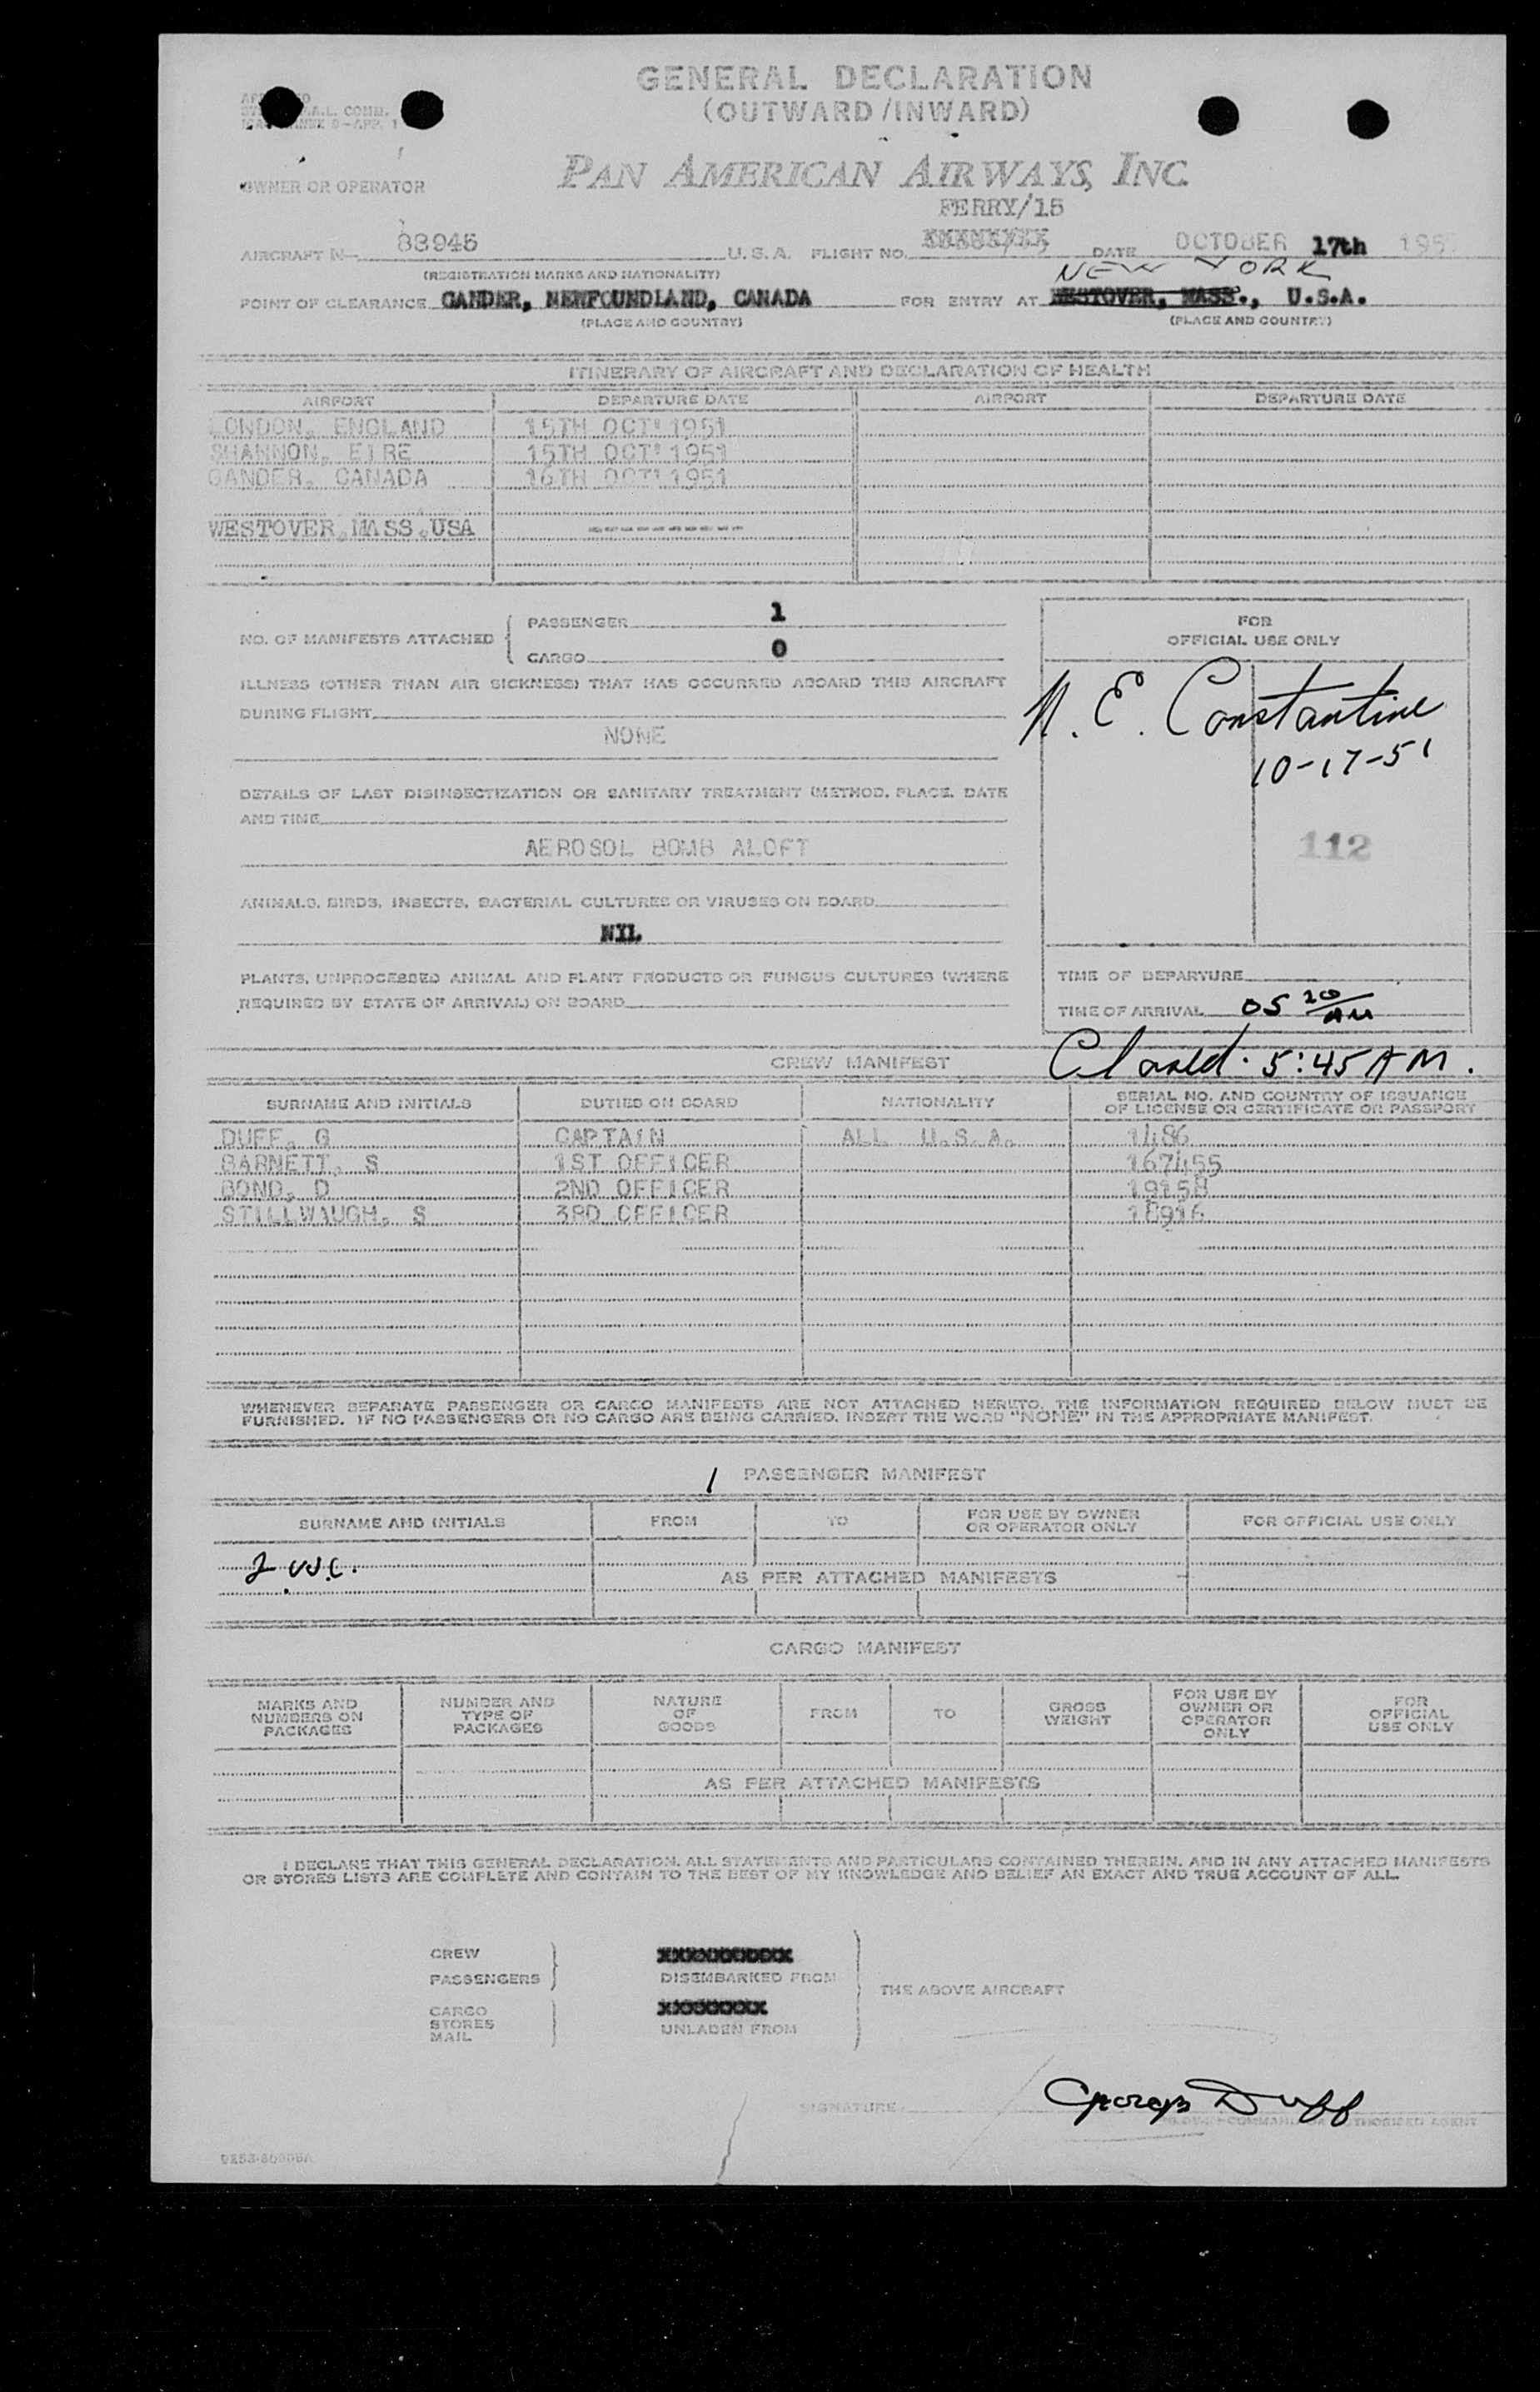 GENERAL DECLARATION
(OUTWARD/INWARD)
A.L. COMM.
9-APP. 1
OWNER OR OPERATOR PAN AMERICAN AIRWAYS, INC.
FERRY/15
AIRCRAFT N- 88945 U.S.A. FLIGHT NO. DATE OCTOBER 17th 195
(REGISTRATION MARKS AND NATIONALITY) NEW YORK
POINT OF CLEARANCE GANDER, NEWFOUNDLAND, CANADA FOR ENTRY AT WESTOVER, MASS., U.S.A.
(PLACE AND COUNTRY) (PLACE AND COUNTRY)
ITINERARY OF AIRCRAFT AND DECLARATION OF HEALTH
AIRPORT DEPARTURE DATE AIRPORT DEPARTURE DATE
LONDON, ENGLAND 15TH OCT' 1951
SHANNON, EIRE 15TH OCT' 1951
GANDER, CANADA 16TH OCT' 1951
WESTOVER,MASS.USA ---------
NO. OF MANIFESTS ATTACHED
PASSENGER 1
CARGO 0
FOR
OFFICIAL USE ONLY
ILLNESS (OTHER THAN AIR SICKNESS) THAT HAS OCCURRED ABOARD THIS AIRCRAFT
DURING FLIGHT
NONE
N. E. Constantine
10-17-51
DETAILS OF LAST DISINSECTIZATION OR SANITARY TREATMENT (METHOD, PLACE, DATE
AND TIME
AEROSOL BOMB ALOFT
112
ANIMALS, BIRDS, INSECTS, BACTERIAL CULTURES OR VIRUSES ON BOARD
NIL
PLANTS, UNPROCESSED ANIMAL AND PLANT PRODUCTS OR FUNGUS CULTURES (WHERE
REQUIRED BY STATE OF ARRIVAL) ON BOARD
TIME OF DEPARTURE
TIME OF ARRIVAL 05 20 AM
CREW MANIFEST
5:45 AM.
SURNAME AND INITIALS DUTIES ON BOARD NATIONALITY SERIAL NO. AND COUNTRY OF ISSUANCE
OF LICENSE OR CERTIFICATE OR PASSPORT
DUFF, G CAPTAIN ALL U.S.A. 1486
BARNETT, S 1ST OFFICER 167455
BOND, D 2ND OFFICER 19158
STILLWAUGH, S 3RD OFFICER 18916
WHENEVER SEPARATE PASSENGER OR CARGO MANIFESTS ARE NOT ATTACHED HERETO, THE INFORMATION REQUIRED BELOW MUST BE
FURNISHED. IF NO PASSENGERS OR NO CARGO ARE BEING CARRIED, INSERT THE WORD "NONE" IN THE APPROPRIATE MANIFEST.
1 PASSENGER MANIFEST
SURNAME AND INITIALS FROM TO FOR USE BY OWNER
OR OPERATOR ONLY FOR OFFICIAL USE ONLY
AS PER ATTACHED MANIFESTS
CARGO MANIFEST
MARKS AND
NUMBERS ON
PACKAGES
NUMBER AND
TYPE OF
PACKAGES
NATURE
OF
GOODS
FROM
TO
GROSS
WEIGHT
FOR USE BY
OWNER OR
OPERATOR
ONLY
FOR
OFFICIAL
USE ONLY
AS PER ATTACHED MANIFESTS
I DECLARE THAT THIS GENERAL DECLARATION, ALL STATEMENTS AND PARTICULARS CONTAINED THEREIN, AND IN ANY ATTACHED MANIFESTS
OR STORES LISTS ARE COMPLETE AND CONTAIN TO THE BEST OF MY KNOWLEDGE AND BELIEF AN EXACT AND TRUE ACCOUNT OF ALL.
CREW
PASSENGERS
DISEMBARKED FROM
THE ABOVE AIRCRAFT
CARGO
STORES
MAIL
UNLADEN FROM
SIGNATURE George Duff
AUTHORISED AGENT